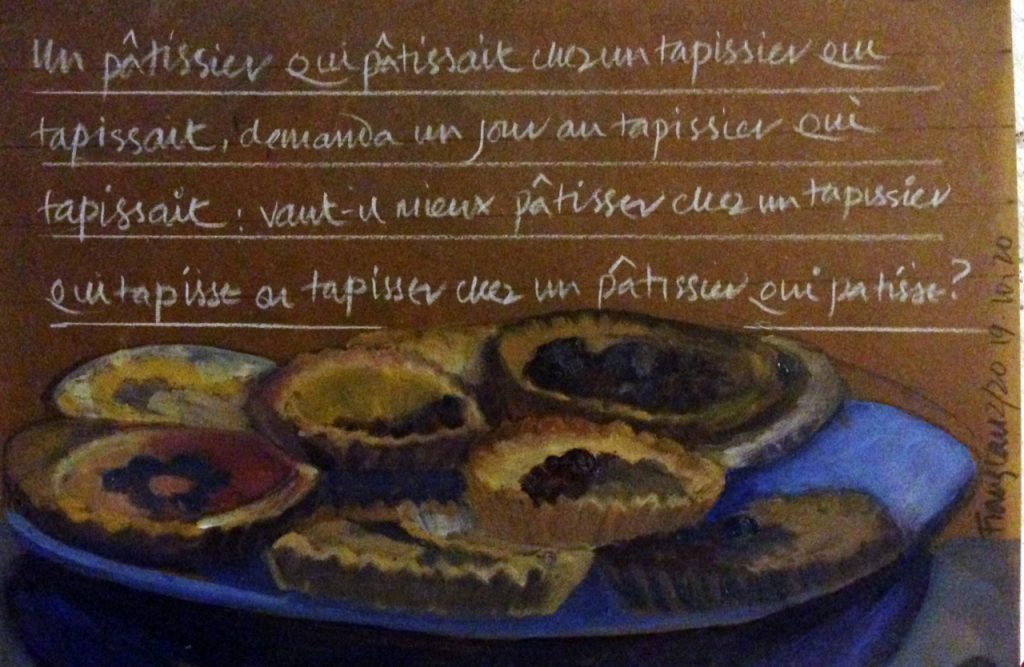 Un pâtissier qui pâtissait chez un tapissier qui
tapissait, demanda un jour au tapissier qui
tapissait : vaut-il mieux pâtisser chez un tapissier
qui tapisse ou tapisser chez un pâtissier qui patisse?